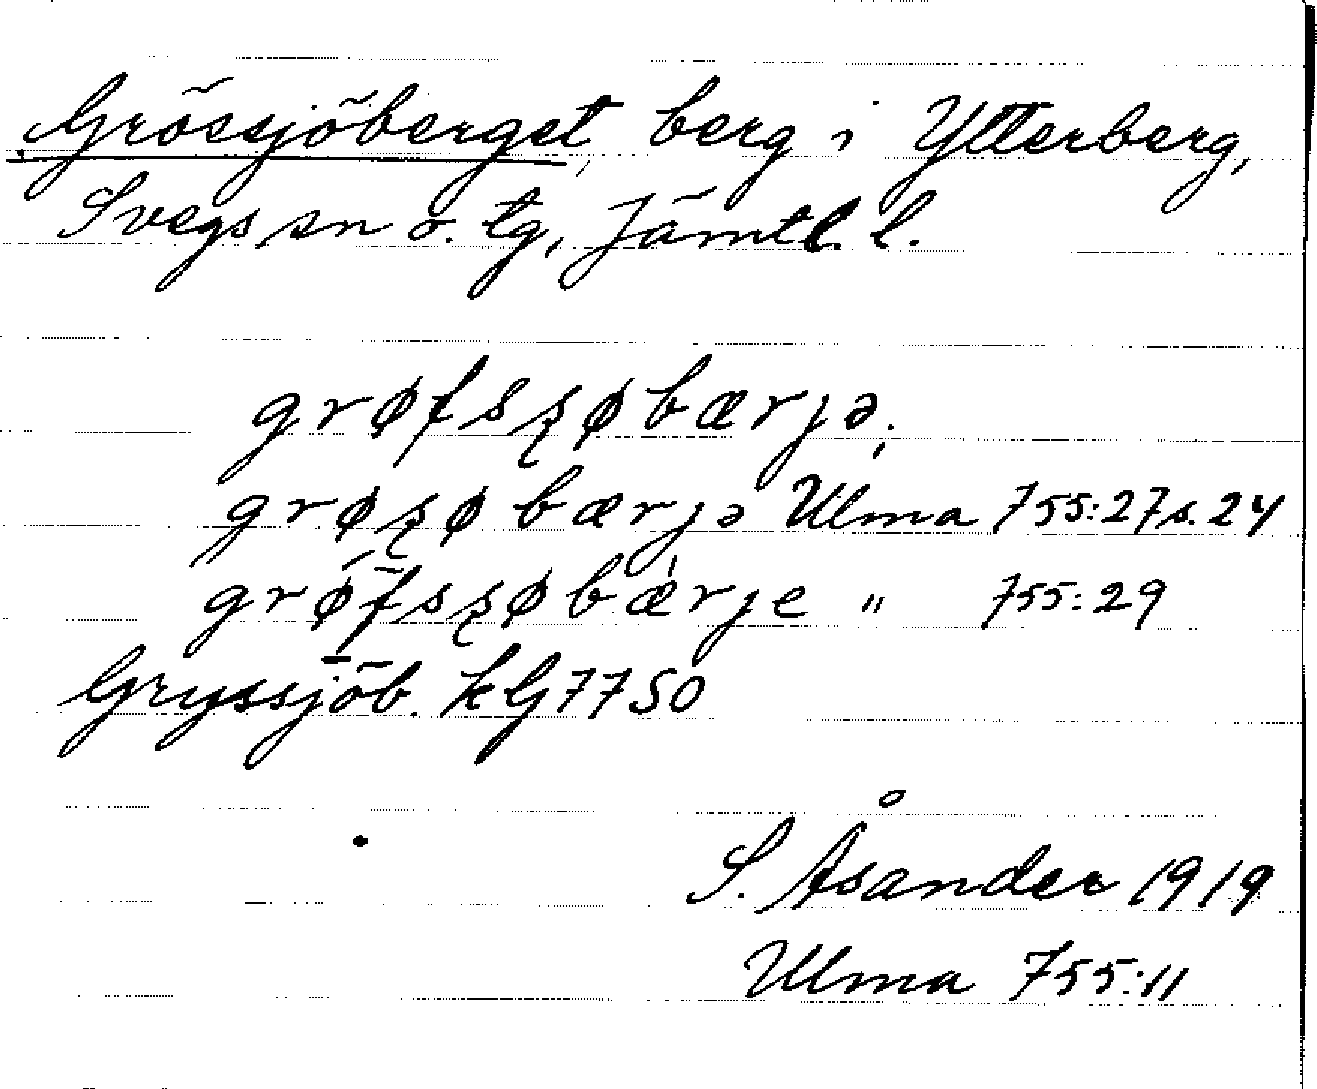 Grössjöberget, berg i Ytterberg,
Svegs sn o. tg, Jämtl. l.
grøfsʂøbærjə;
grøʂøbærjə Ulma 755:27 s. 24
grøfsʂøbærje " 755:29
Gryssjöb. kG 7750
S. Åsander 1919
Ulma 755:11